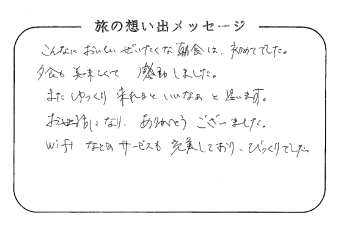 旅の想い出メッセージ
こんなにおいしいぜいたくな朝食は、初めてでした。
夕食も美味しくて 感動しました。
またゆっくり来れるといいなぁと思います。
お世話になり、ありがとうございました。
wifi などのサービスも充実しており、びっくりでした。